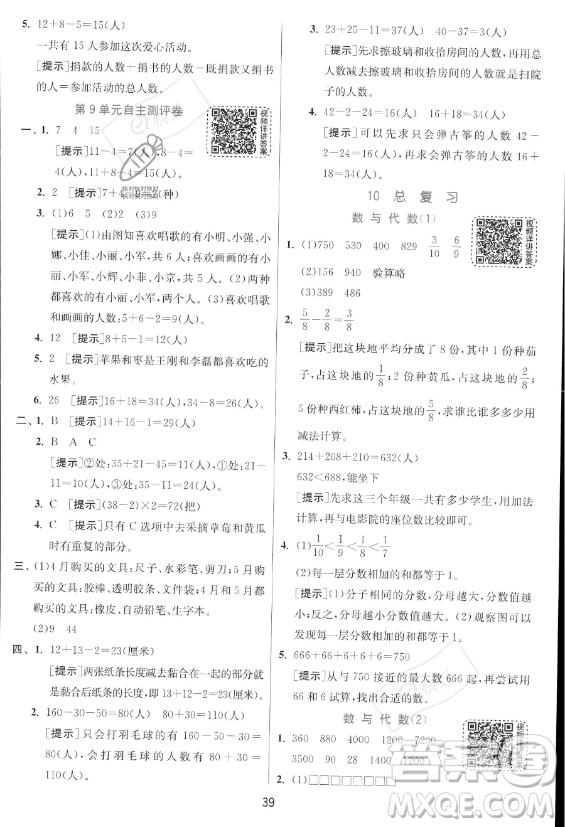 5. 12+8-5=15(人)
一共有 15 人参加这次爱心活动。
[提示]捐款的人数+捐书的人数-既捐款又捐书
的人数=参加活动的总人数。
第 9 单元自主测评卷
视频详讲答案
一、1. 7 4 15
[提示]11-4=7(人),8-4=
4(人),11+8-4=15(人)
2. 2 [提示]7+
(种)
3. (1)6 5 (2)2 (3)9
[提示](1)由图知喜欢唱歌的有小明、小强、小
娜、小佳、小丽、小军,共 6 人;喜欢画画的有小
冬、小兴、小辉、小丽、小军,共 5 人;(2)两种都
喜欢的有小丽、小军,共 2 人;(3)喜欢唱歌
和画画的人数:5+6-2=9(人)
4. 12 [提示]8+5-1=12(人)
5. 2 [提示]苹果和枣是王刚和李磊都喜欢吃的
水果。
6. 26 [提示]14+16-4=26(人)
二、1. B [提示]14+16-1=29(人)
2. B A C
[提示]②处:35+21-45=11(人),①处:21-
11=10(人),③处:35-11=24(人)
3. C [提示](38-2)×2=72(把)
4. C [提示]只有 C 选项中去采摘草莓和黄瓜
时有重复的部分。
三、(1)4 月购买的文具:尺子、水彩笔、剪刀;5 月
购买的文具:胶棒、透明胶条、文件袋;4 月和 5 月都
购买的文具:橡皮、自动铅笔、生字本。
(2)9 44
四、1. 12+13-2=23(厘米)
[提示]两张纸条长度减去黏合在一起的部分就
是黏合后纸条的长度,13+12-2=23(厘米)
2. 160-30-50=80(人) 160-50=110(人)
[提示]只会打羽毛球的人数:160-30-50=
80(人),会打羽毛球的人数:160-50=
110(人)。
3. 23+25-11=37(人) 45-37=8(人)
[提示]先求擦玻璃和收拾房间的人数,用总人
数减去擦玻璃和收拾房间的人数就是扫院
子的人数。
4. 42-2-24=16(人) 16+18=34(人)
[提示]可以先求只会弹古筝的人数,列式为
42-2-24=16(人),再求会弹古筝的人数:
16+18=34(人)。
10 总 复 习
数 与 代 数(1)
视频详讲答案
1. (1)750 530 400 829 3/10 6/9
(2)154 940 验算略
(3)389 486
2. 5/8-2/8=3/8
[提示]把这块地平均分成了 8 份,2 份种茄
子,占这块地的1/8;2 份种黄瓜,占这块地的2/8;
5 份种西红柿,占这块地的5/8,求谁比谁多就用
减法计算。
3. 214+208+210=632(人)
632<686,能坐下
[提示]先求这三个年级一共有多少学生,再求
与电影院的座位数比较即可。
4. (1)1/10<1/9<1/8<1/2
(2)每一层分数相加的和都为 1。
[提示](1)分子是1的分数,分母越大分数越
小;反之,分母越小分数值越大。(2)观察图可以
发现每一层分数相加的和都为 1。
5. 666+66+6+6+6=750
[提示]从与 750 接近的最大的数 666 起,试
着和 6 试算,找出合适的数。
数 与 代 数(2)
1. 360 880 4000 1000
3500 90 28 1400 1200
2. (1)□□□□□□□□
39